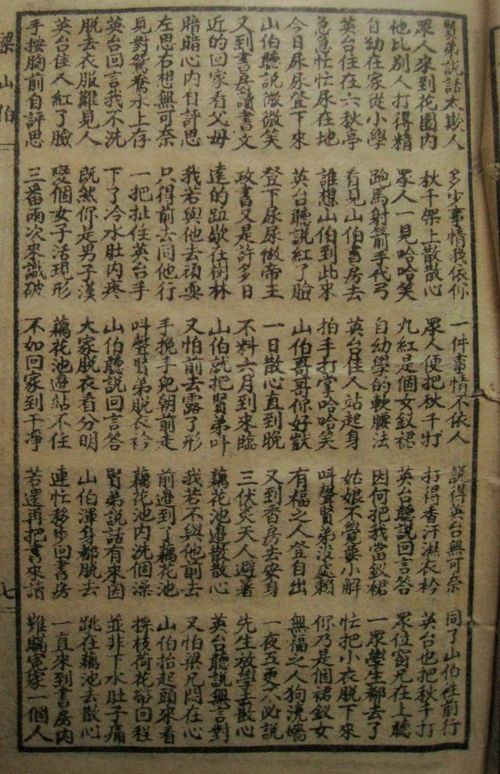 賢弟說話太欺人 多少事情我依你 一件事情不依人 說得英台無可奈 同了山伯往前行
眾人來到花園内 秋千架上散散心 眾人便把秋千打 打得香汗濕衣衿 英台也把秋千打
他比別人打得精 眾人一見哈哈笑 九紅是個女釵裙 英台聽說回言答 眾位窗兄在上聽
自幼在家從小學 跑馬射箭手代弓 自幼學的軟腰法 因何把我當釵裙 一眾學生都去了
英台住在六秋亭 看見山伯書房去 英台佳人站起身 姑娘不覺要小解 忙把小衣脫下來
急急忙忙尿在地 誰想山伯到此來 拍手打掌哈哈笑 叫聲賢弟没處賴 你乃是個裙釵女
今日尿尿登下來 英台聽說紅了臉 山伯哥哥你好獃 有福之人登自出 無福之人狗澆墻
山伯聽說微微笑 登下尿尿做帝王 一日散心直到晚 又到香房去安身 一夜五更不必說
又到書房讀書文 政書又是許多日 不料六月到來臨 三伏炎天人避暑 先生放學去散心
近的回家看父母 遠的歇在樹林 山伯就把賢弟叫 藕花池邊散散心 英台聽說無言對
暗暗心内自評思 我若與他去頑耍 又怕前去露了形 我若不與他前去 又怕梁兄悶在心
左思右想無可奈 只得前去同他行 手挽手兒朝前走 前邊到了藕花池 山伯抬起頭來看
見對鴛鴦水上存 一把扯住英台手 叫聲賢弟脫衣衿 藕花池内洗個澡 採枝荷花帶回程
英台回言我不洗 下了冷水肚内疼 山伯聽說回言答 賢弟說話有來因 並非下水肚子痛
脫去衣服難見人 既然你是男子漢 大家脫衣看分明 山伯渾身都脫去 跳在藕池去散心
英台佳人紅了臉 變個女子活現形 藕花池邊站不住 連忙移步回書房 一直來到書房内
手按胸前自評思 三番兩次來識破 不如回家到干凈 若還再把書來讀 難瞞冤家一個人
梁山伯
七